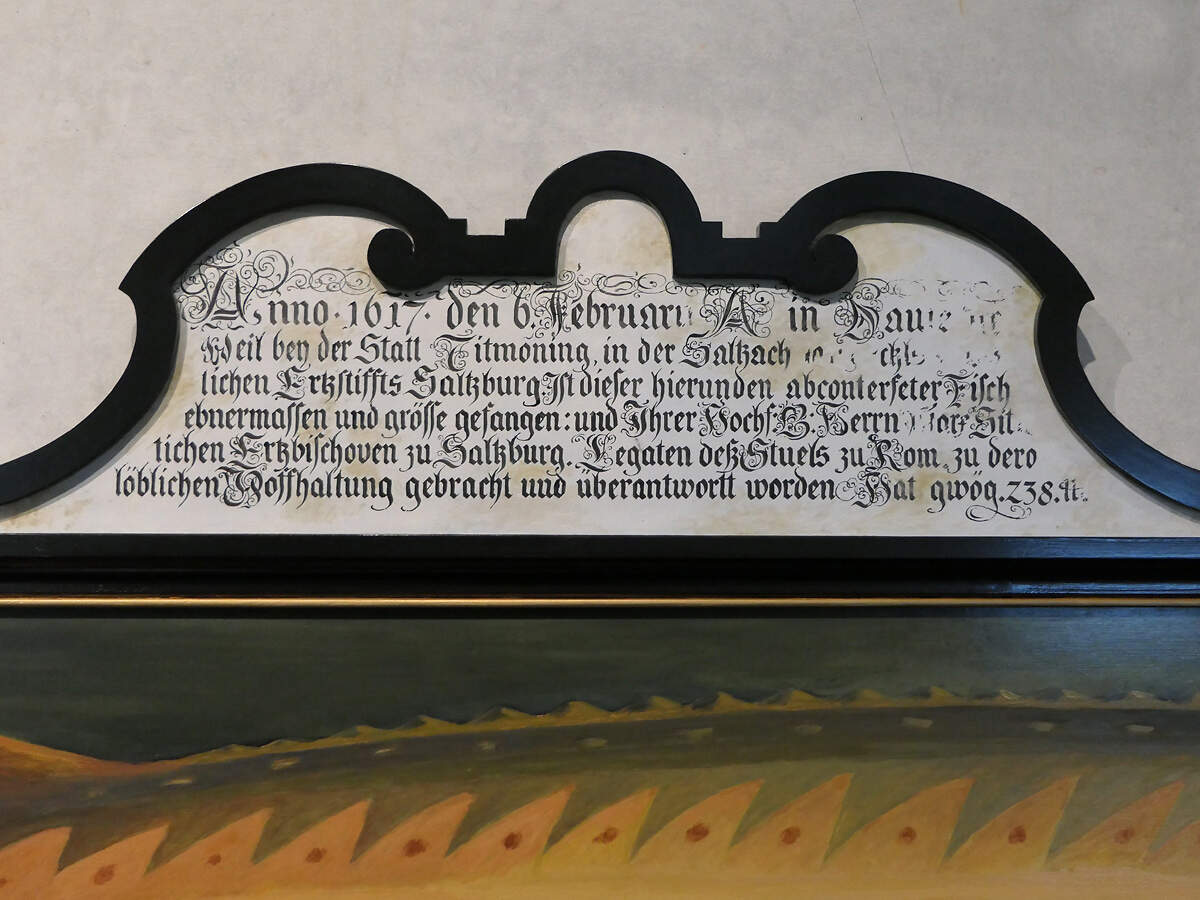 Anno · 1617 · den 6. Februarii A in
Weil bey der Statt Titmoning, in der Saltzach
lichen Ertzstiffts Saltzburg Ist dieser hierunden abconterfeter Fisch
ebnermassen und grösse gefangen: und Ihrer Hochf: G. Herrn Marx Sit
tichen Ertzbischoven zu Saltzburg. Legaten deß Stuels zu Rom, zu dero
löblichen Hoffhaltung gebracht und überantwortt worden Hat gwög. 238. tt.